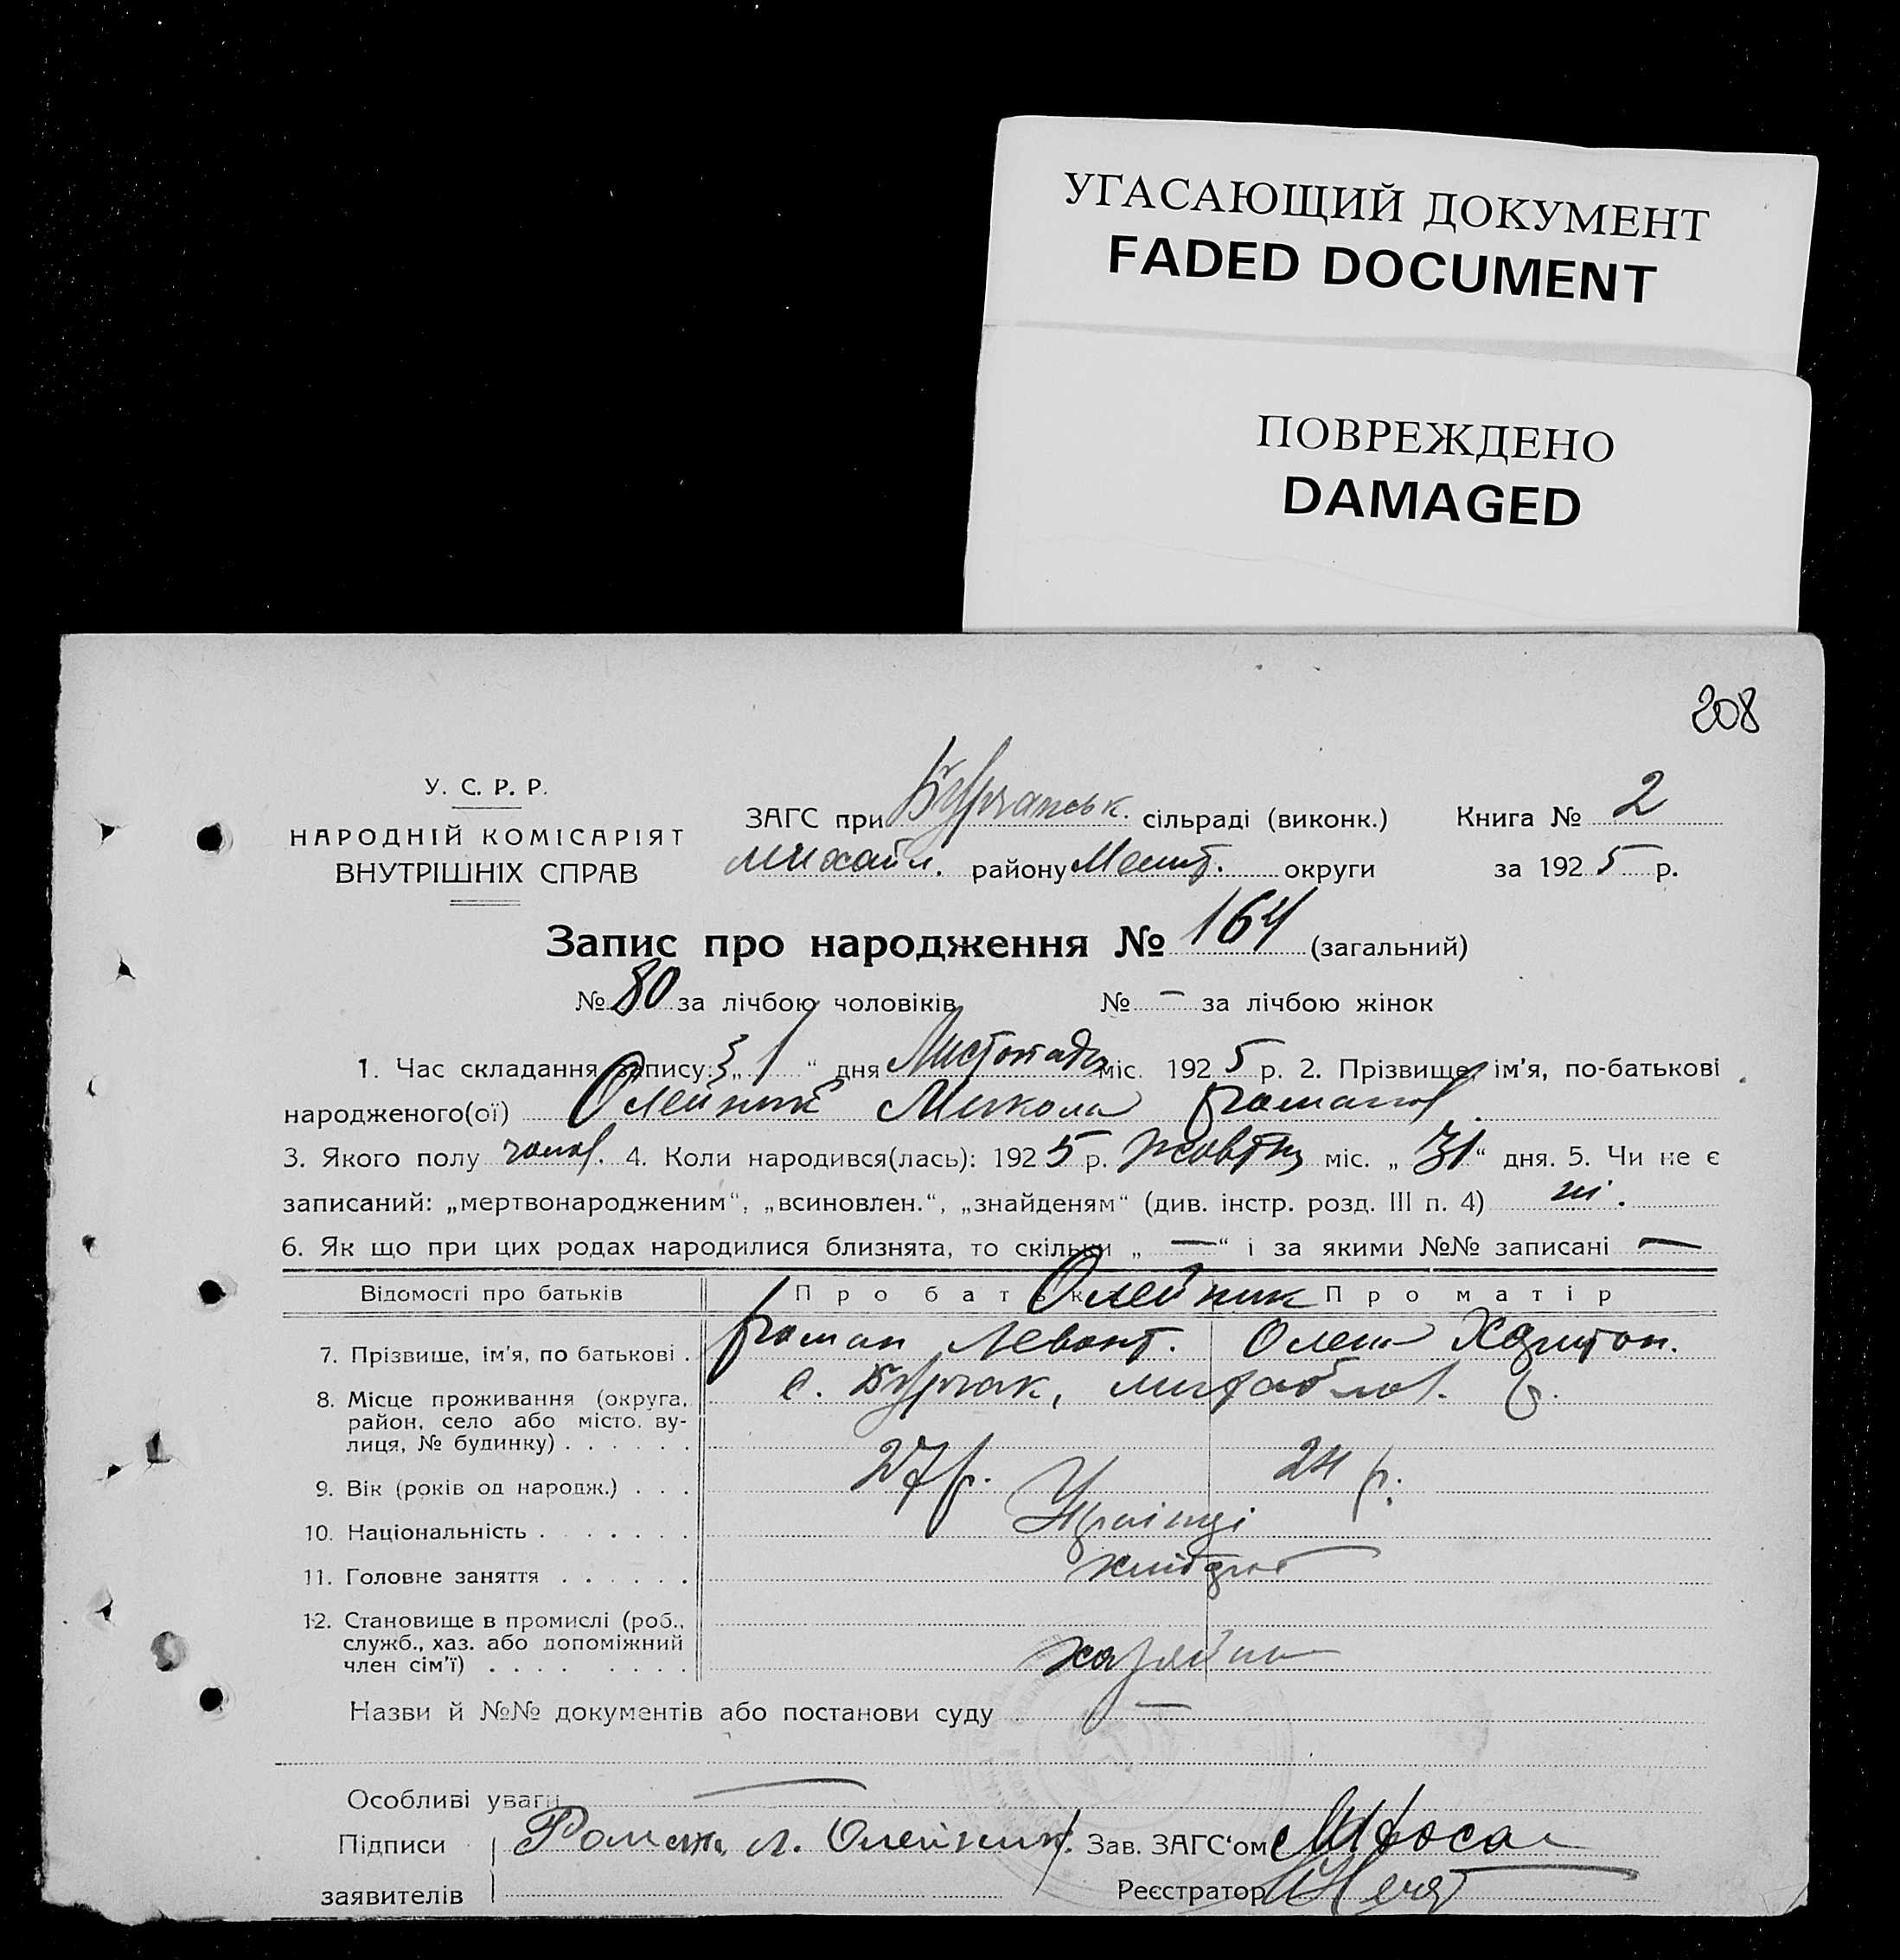 УГАСАЮЩИЙ ДОКУМЕНТ
FADED DOCUMENT
ПОВРЕЖДЕНО
DAMAGED
208
У. С. Р. Р.
НАРОДНІЙ КОМІСАРІЯТ
ВНУТРІШНІХ СПРАВ
ЗАГС при Бурчанськ. сільраді (виконк.) Книга № 2
Михайл. району Меліт. округи за 1925 р.
Запис про народження № 164 (загальний)
№ 80 за лічбою чоловіків № — за лічбою жінок
1. Час складання запису: „1“ дня Листопада міс. 1925 р. 2. Прізвище, ім'я, по-батькові
народженого(ої) Олейник Микола Романов.
3. Якого полу чолов. 4. Коли народився(лась): 1925 р. жовтня міс. „31“ дня. 5. Чи не є
записаний: „мертвонародженим“, „всиновлен.“, „знайденям“ (див. інстр. розд. III п. 4) ні.
6. Як що при цих родах народилися близнята, то скільки „ — “ і за якими №№ записані —
Відомості про батьків Про батька Олейник Про матір
7. Прізвище, ім'я, по батькові . Роман Левонт. Олена Харитон.
8. Місце проживання (округа, с. Бурчак, Михайлов. р.
район, село або місто, ву-
лиця, № будинку) . . . . . .
9. Вік (років од народж.) . . . 27 р. 24 р.
10. Національність . . . . . . . Українці
11. Головне заняття . . . . . . хлібороб
12. Становище в промислі (роб.,
служб., хаз. або допоміжний
член сім'ї) . . . . . . . . хазяїн
Назви й №№ документів або постанови суду —
Особливі уваги —
Підписи Роман Л. Олейник. Зав. ЗАГС'ом
заявителів Реєстратор